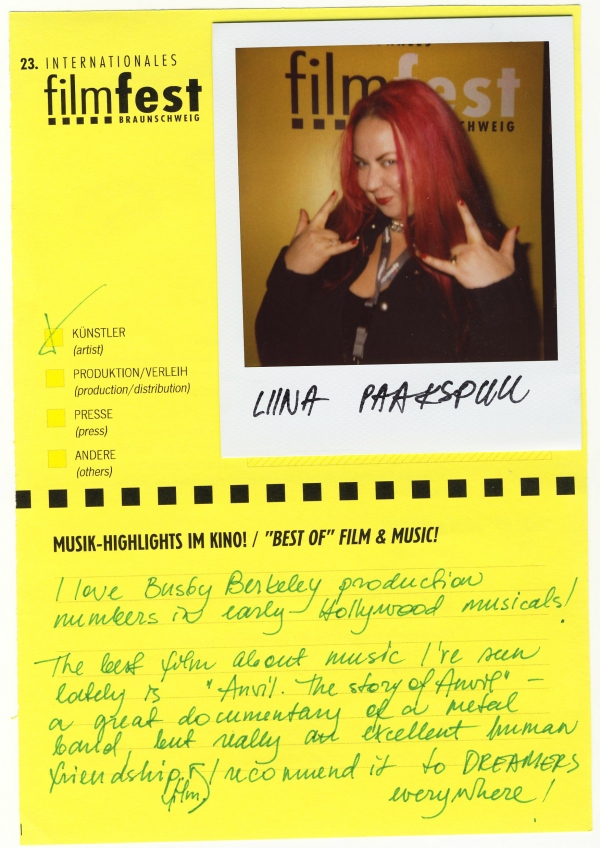 23. INTERNATIONALES
filmfest
BRAUNSCHWEIG
filmfest
CHWEIG
KÜNSTLER
(artist)
PRODUKTION/VERLEIH
(production/distribution)
PRESSE
(press)
ANDERE
(others)
LIINA PAAKSPUU
MUSIK-HIGHLIGHTS IM KINO! / "BEST OF" FILM & MUSIC!
I love Busby Berkeley production
numbers in early Hollywood musicals!
The best film about music I've seen
lately is "Anvil. The story of Anvil" -
a great documentary of a metal
band, but really an excellent human
friendship. I recommend it to DREAMERS
film, everywhere!